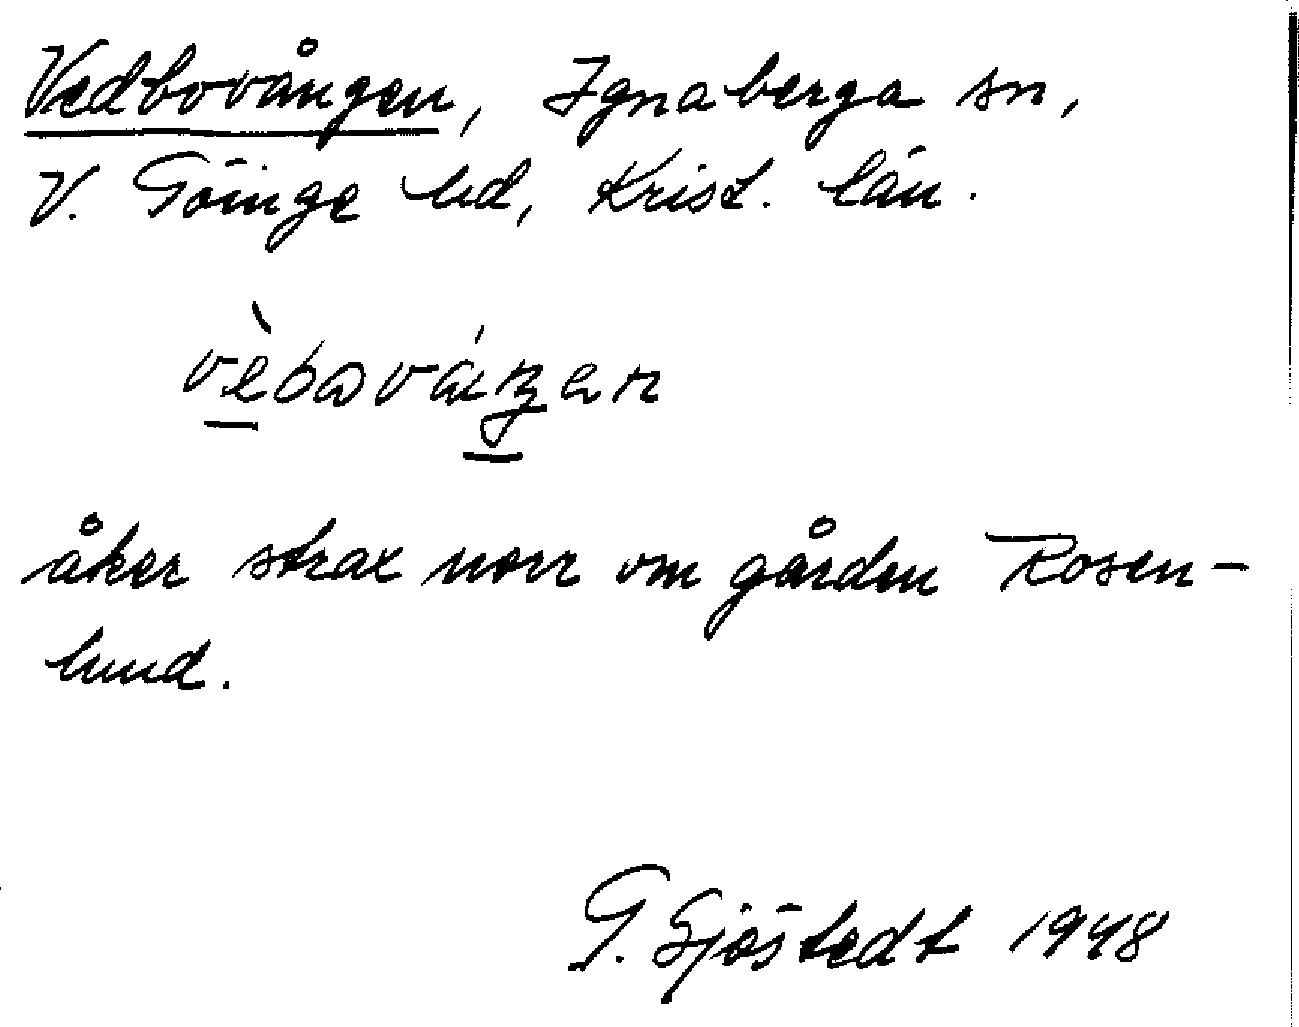 Vedbovången, Ignaberga sn,
V. Göinge hd, Krist. län.
vèbωváŋen
åker strax norr om gården Rosen-
lund.
G. Sjöstedt 1948